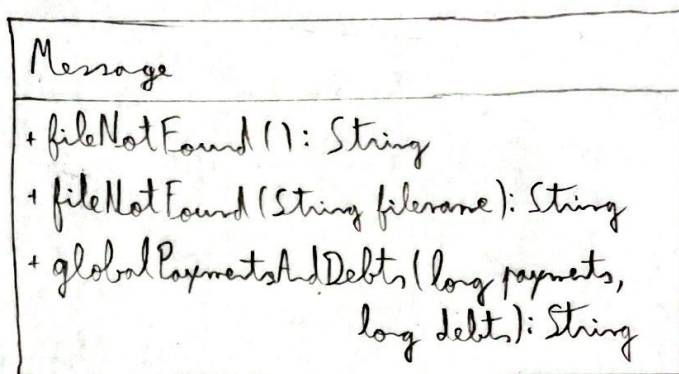 Message
+ fileNotFound(): String
+ fileNotFound(String filename): String
+ globalPaymentsAndDebts(long payments,
long debts): String